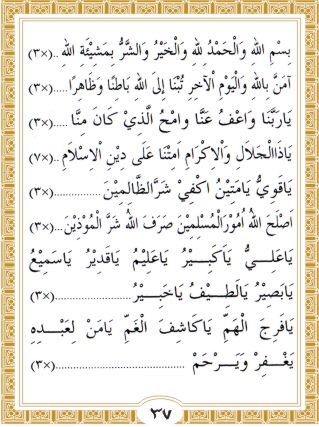 بِسْمِ اللهِ وَالْحَمْدُ لِلهِ وَالْخَيْرُ وَالشَّرُّ بِمَشِيْئَةِ اللهِ ..(×٣)
آمَنَّا بِاللهِ وَالْيَوْمِ الْآخِرِ تُبْنَا إِلَى اللهِ بَاطِنًا وَظَاهِرًا.....(×٣)
يَارَبَّنَا وَاعْفُ عَنَّا وامْحُ الَّذِيْ كَانَ مِنَّا .....(×٣)
يَاذَاالْجَلَالِ وَالْاِكْرَامِ اَمِتْنَا عَلَى دِيْنِ الْاِسْلَامِ ..(×٧)
يَاقَوِيُّ يَامَتِيْنُ اكْفِيْ شَرَّالظَّالِمِيْنَ ................(×٣)
اَصْلَحَ اللهُ اُمُوْرَالْمُسْلِمِيْنَ صَرَفَ اللهُ شَرَّ الْمُؤْذِيْنَ...(×٣)
يَاعَلِـــيُّ يَاكَبِـــيْرُ يَاعَلِيْمُ يَاقَدِيْرُ يَاسَمِيْعُ
يَابَصِيْرُ يَالَطِـــيْفُ يَاخَبِـــيْرُ......................(×٣)
يَافَرِجَ الْهَمِّ يَاكَاشِفَ الْغَمِّ يَامَنْ لِعَبْـــدِهِ
يَغْـــفِرْ وَيَـــرْحَمْ ......................................(×٣)
٣٧